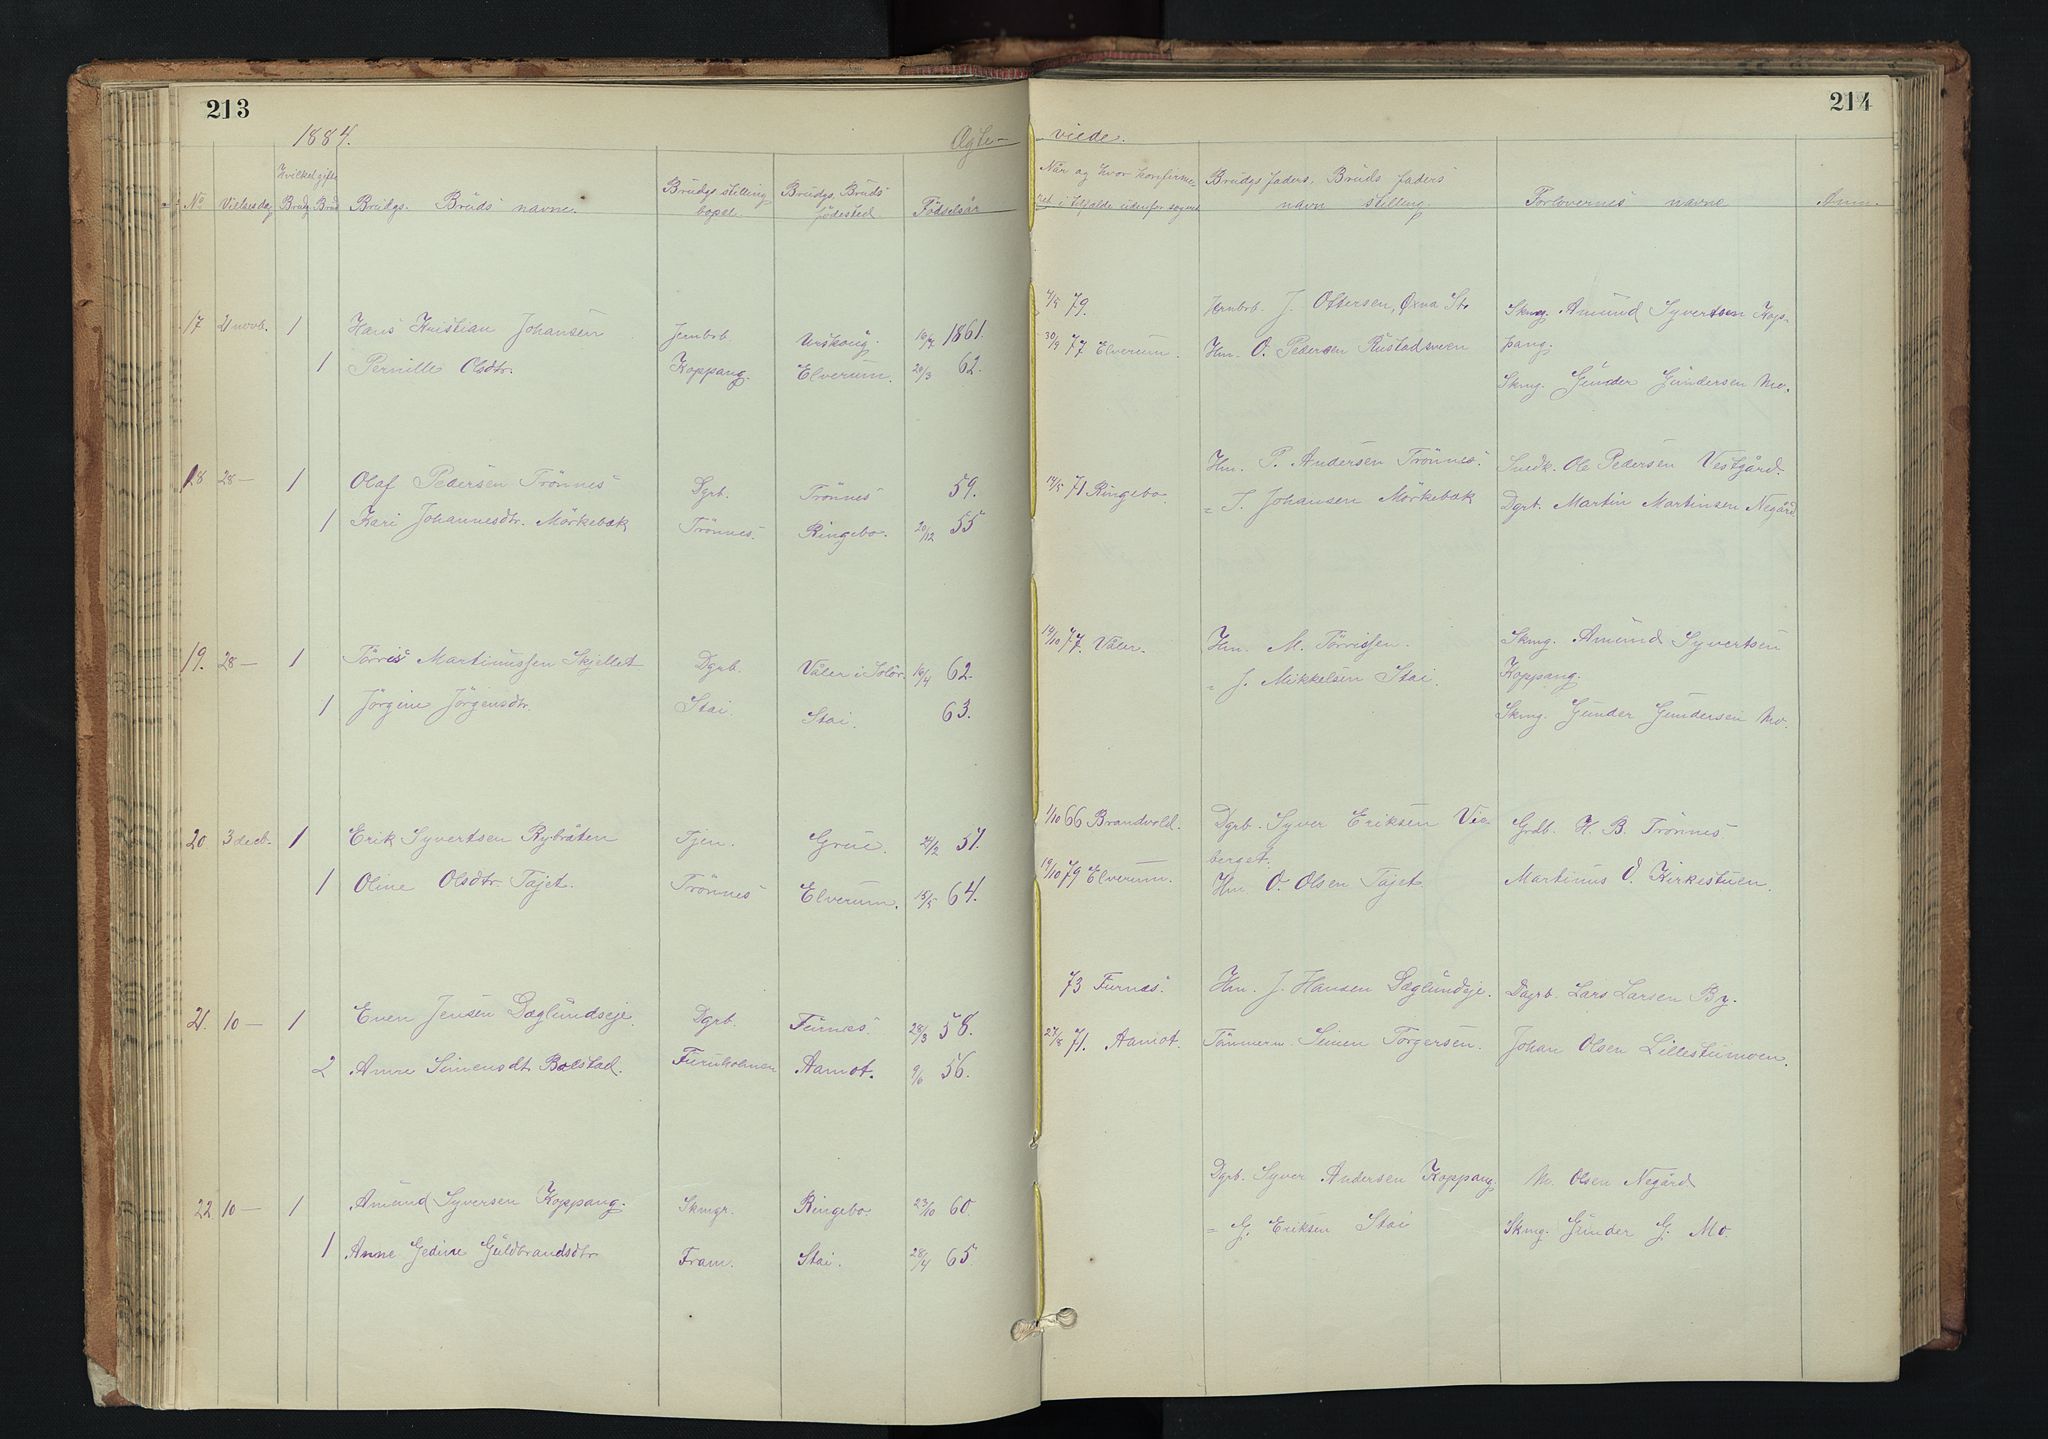 213
1884.
Ægte-
No
Vielsesdag
Hvilket gifte
Brudg. Brud
Brudgs. Bruds navne.
Brudgs stilling
bopæl.
Brudgs. Bruds
fødested.
Fødselsår
17 21 novb. 1 Hans Kristian Johansen Jernbrb. Urskoug. 16/7 1861.
1 Pernille Olsdtr. Koppang. Elverum. 20/3 62.
18 28 — 1 Olaf Pedersen Trönnes Dgrb. Trönnes 59.
1 Kari Johannesdtr. Mörkebæk Trönnes. Ringebo. 20/12 55
19. 28 — 1 Törris Martinussen Skjellet Dgrb. Våler i Solör. 16/4 62.
1 Jörgine Jörgensdtr. Stai. Stai. 63.
20 3 decb. 1 Erik Syvertsen Rybråten Tjen. Grue. 21/2 51.
1 Oline Olsdtr. Tajet. Trönnes Elverum. 15/5 64.
21. 10 — 1 Even Jensen Dæglundseje. Dgrb. Furnes. 28/3 58.
2 Anne Simensdt. Bolstad. Furuholmen Aamot. 9/6 56.
22 10 — 1 Amund Syversen Koppang. Skmgr. Ringebo. 23/10 60.
1 Anne Gedine Guldbrandsdtr Fram. Stai. 28/4 65.
214
viede.
Når og hvor konfirme-
ret i tilfælde udenfor sognet
Brudgs faders, Bruds faders
navn stilling.
Forlovernes navne
Anm.
4/5 79. Jernbrb. J. Ottersen, Øxna St. Skmg. Amund Syvertsen Kop-
30/9 77 Elverum. Hm. O. Pedersen Rustadsveen pang.
Skmg. Gunder Gundersen Mo.
Hm. P. Andersen Trönnes. Snedk. Ole Pedersen Vestgård.
14/5 71 Ringebo. = J. Johansen Mörkebæk Dgrt. Martin Martinsen Negård
14/10 77. Våler. Hm. M. Törrissen. Skmg. Amund Syvertsen
= J. Mikkelsen Stai. Koppang.
Skmg. Gunder Gundersen Mo.
1/10 66 Brandvold. Dgrb. Syver Eriksen Vie- Grdb. H. B. Trönnes
berget.
19/10 79 Elverum. Hm O. Olsen Tajet. Martinus O. Kirkestuen.
73 Furnæs. Hm. J. Hansen Dæglundeje. Dagrb. Lars Larsen By.
27/8 71. Aamot. Tömmerm. Simen Torgersen. Johan Olsen Lillestumoen.
Dgrb. Syver Andersen Koppang. M. Olsen Negård
= G. Eriksen Stai Skmg. Gunder G. Mo.